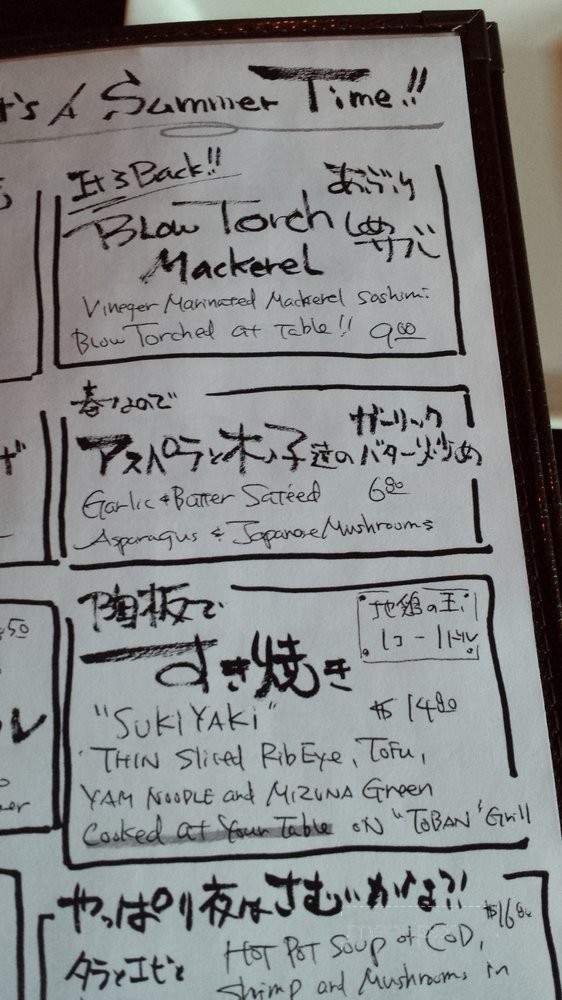 t's A Summer Time!!
It's Back!!
あぶり
Blow Torch しめ
サバ
Mackerel
Vineger Marinated Mackerel Sashimi
Blow Torched at Table!! 9.00
春なので
ガーリック
アスパラと木ノ子達のバター炒め
Garlic & Butter Satéed 6.80
Asparagus & Japanese Mushrooms
陶板で
地鶏の玉子
1コ-1ドル
すき焼き
"SUKIYAKI" $14.80
THIN Sliced RibEye, Tofu,
YAM NOODLE and MIZUNA Green
Cooked at Your Table on "TOBAN" Grill
.50
ル
やっぱり夜はさむいわよね?! $16.80
タラとエビと
HOT POT Soup of COD,
Shrimp and Mushrooms in